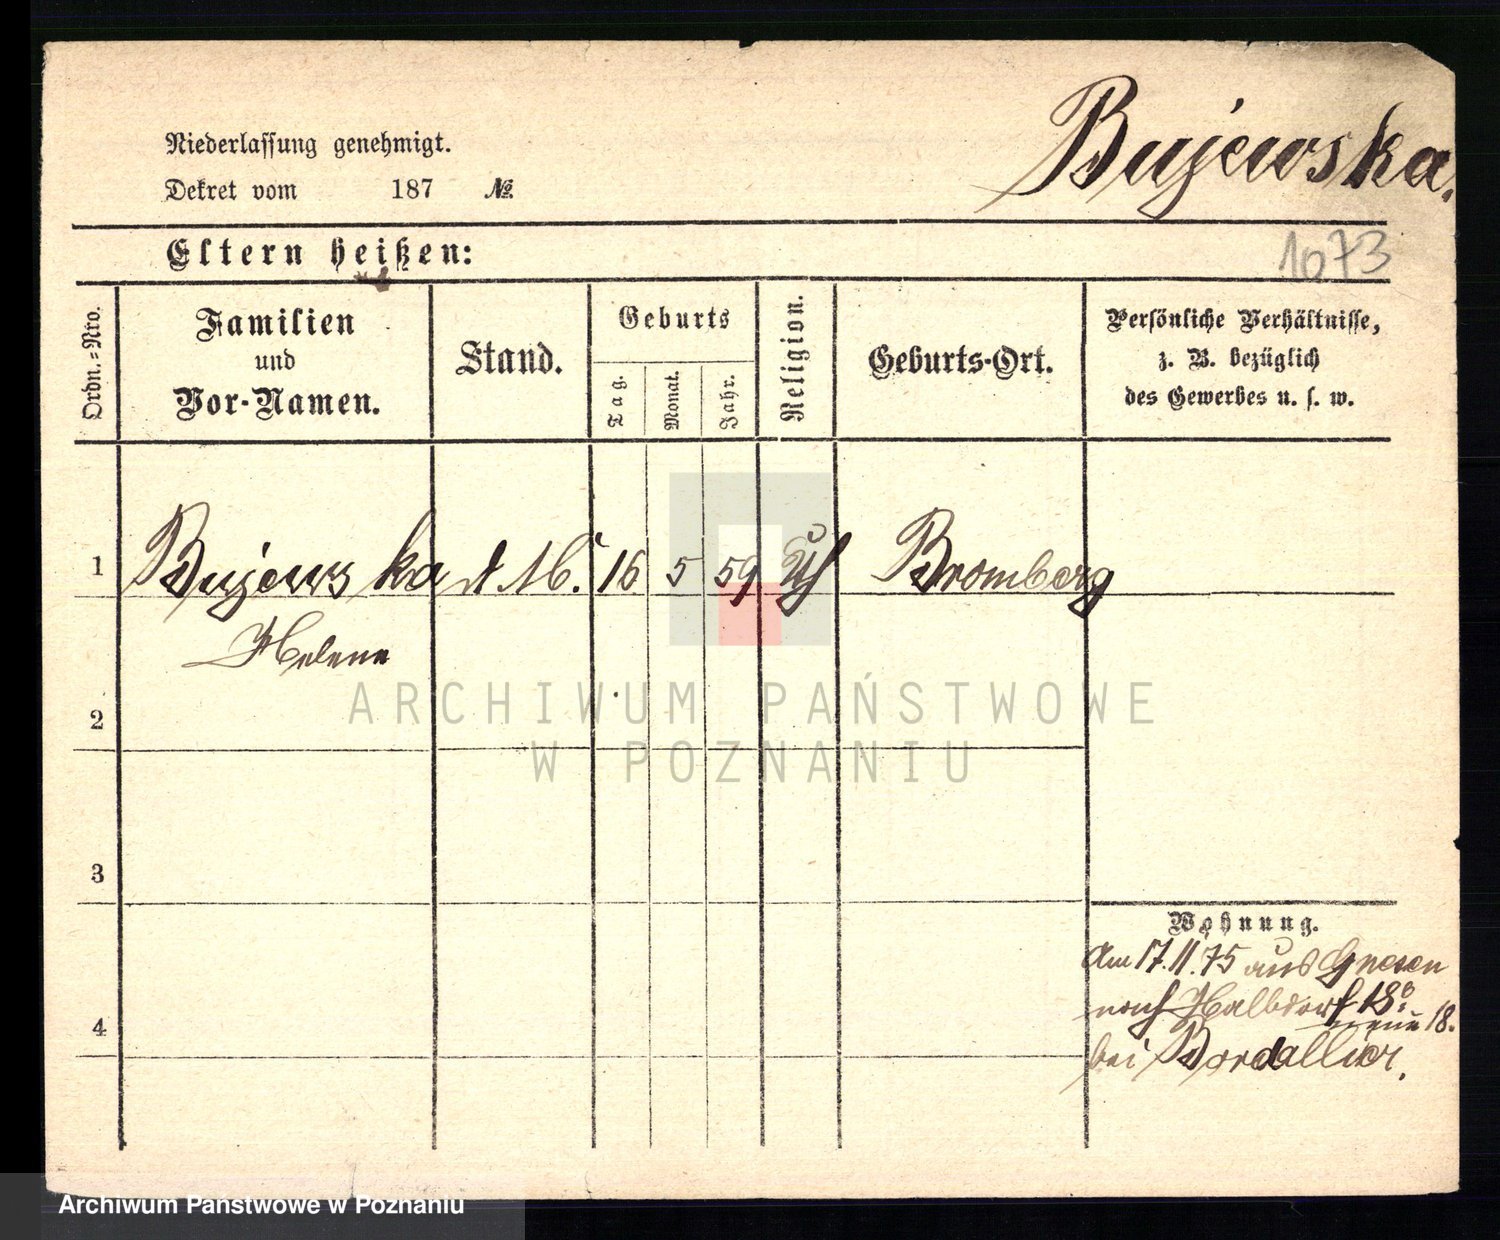 Bujewska.
Niederlassung genehmigt.
Dekret vom 187 №
Eltern heißen:
1073
Ordn.-Nro.
Familien
und
Vor-Namen.
Stand.
Geburts
Tag.
Monat.
Jahr.
Religion.
Geburts-Ort.
Persönliche Verhältnisse,
z. B. bezüglich
des Gewerbes u. s. w.
1 Bujewska 16 5 59 Bromberg
Helene
ARCHIWUM PAŃSTWOWE
2
W POZNANIU
3
Wohnung.
Am 17.11.75 aus Gnesen
nach Halbdorf 18
4
neue 18.
bei Bordallier.
Archiwum Państwowe w Poznaniu